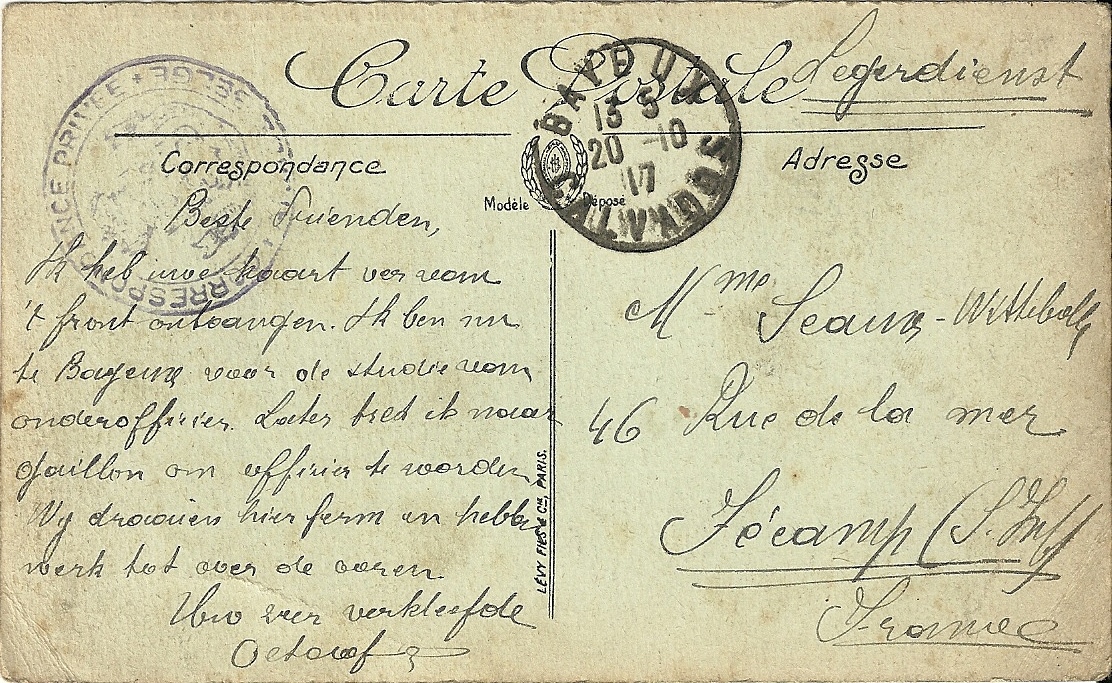 Carte Postale Legerdienst
CORRESPONDANCE PRIVÉE BELGE
BAYEUX
13 5
20 -10
17
CALVADOS
Correspondance
Adresse
Modèle Déposé
Beste Vrienden,
Ik heb uwe kaart van
't front ontvangen. Ik ben nu
te Bayeux voor de studie van
onderofficier. Later tred ik naar
Gaillon om officier te worden
Wij draaien hier ferm en hebben
werk tot over de ooren
Uw zeer verkleefde
Octaaf
LÉVY FILS & Cie, PARIS.
Mme Seaux-Wittebolle
46 Rue de la mer
Fécamp (S. Inf)
France